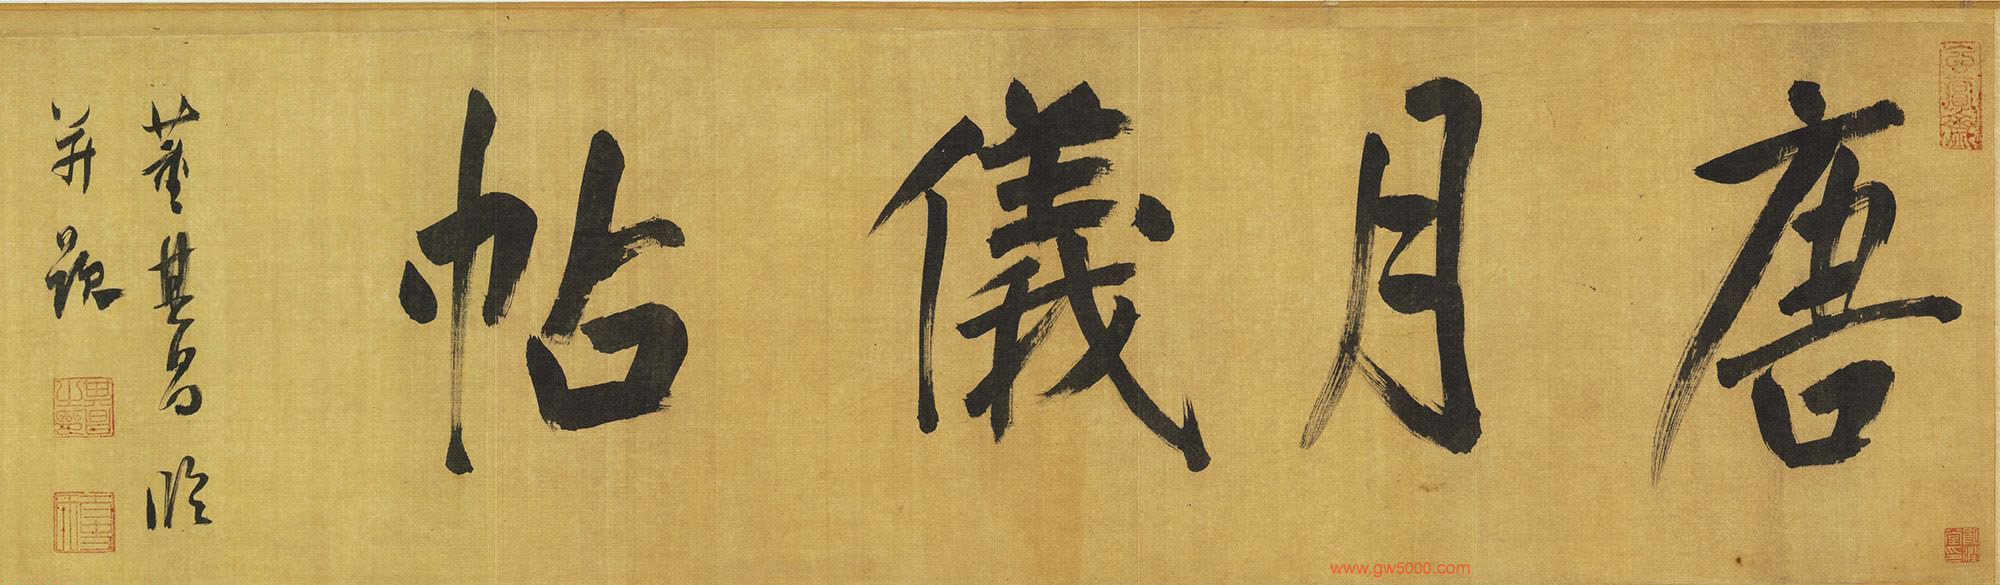 唐月儀帖
董其昌臨
并題
玄賞齋
www.gw5000.com